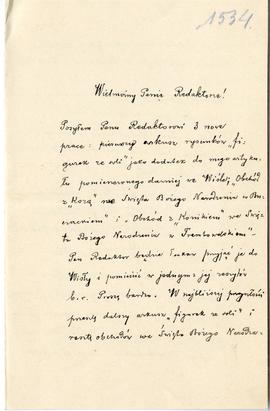 1534.
Wielmożny Panie Redaktorze!
Posyłam Panu Redaktorowi 3 nowe
prace: pierwszy arkusz rysunków „fi-
gurek ze soli" jako dodatek do mego artyku-
łu pomieszczonego dawniej we Wiśle, „Obchód
z „Kozą" na Święta Bożego Narodzenia w
" i „Obchód z „Konikiem" we Świę-
ta Bożego Narodzenia w Trembowelskiem".
Pan Redaktor będzie łaskaw przyjąć je do
Wisły i pomieścić w jednym z jej zeszytów
b. r. Proszę bardzo. W najbliższej przyszłości
prześlę dalszy arkusz „figurek ze soli" i
resztę obchodów we Święta Bożego Narodze-